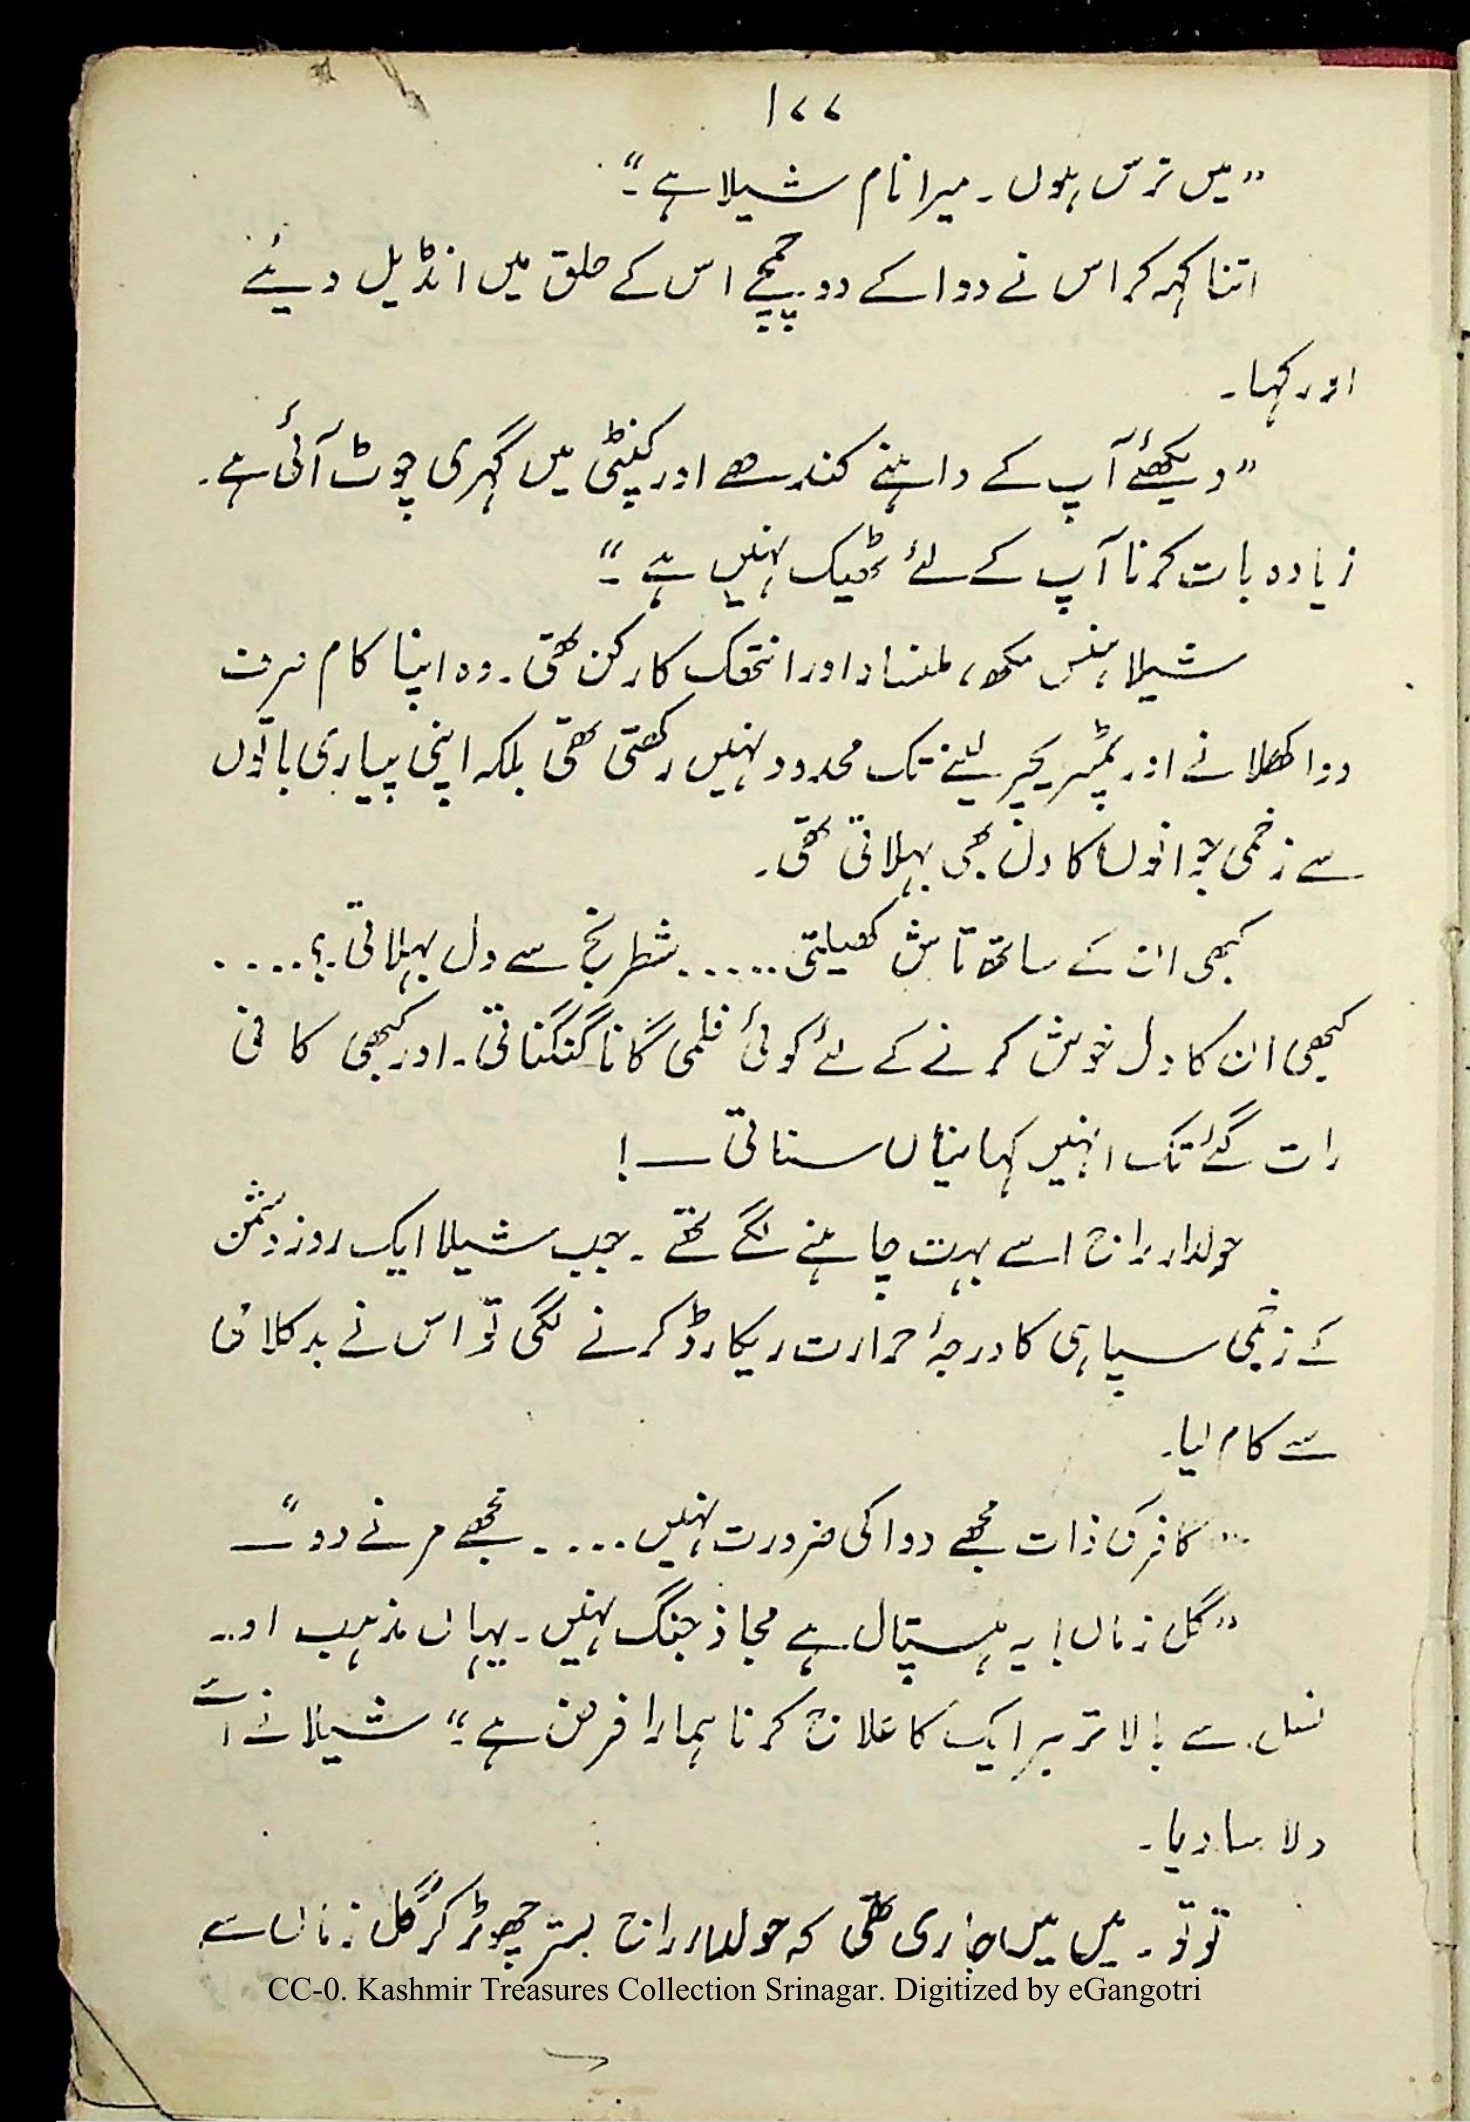 ۱۷۷
”میں نرس ہوں۔ میرا نام شیلا ہے۔“
اتنا کہہ کر اس نے دوا کے دو چمچے اس کے حلق میں انڈیل دیئے
اور کہا۔
”دیکھئے آپ کے داہنے کندھے اور کنپٹی میں گہری چوٹ آئی ہے۔
زیادہ بات کرنا آپ کے لئے ٹھیک نہیں ہے۔“
شیلا ہنس مکھ، ملنسار اور انتھک کارکن تھی۔ وہ اپنا کام صرف
دوا کھلانے اور ٹمپریچر لینے تک محدود نہیں رکھتی تھی بلکہ اپنی پیاری باتوں
سے زخمی جوانوں کا دل بھی بہلاتی تھی۔
کبھی ان کے ساتھ تاش کھیلتی ...... شطرنج سے دل بہلاتی ....
کبھی ان کا دل خوش کرنے کے لئے کوئی فلمی گانا گنگناتی۔ اور کبھی کافی
رات گئے تک انہیں کہانیاں سناتی ــــ!
حولدار راج اسے بہت چاہنے لگے تھے۔ جب شیلا ایک روز دشمن
کے زخمی سپاہی کا درجۂ حرارت ریکارڈ کرنے لگی تو اس نے بدکلامی
سے کام لیا۔
”کافر کی ذات مجھے دوا کی ضرورت نہیں .... مجھے مرنے دو“ــــ
”گل زماں! یہ ہسپتال ہے محاذ جنگ نہیں۔ یہاں مذہب اور
نسل سے بالاتر ہر ایک کا علاج کرنا ہمارا فرض ہے۔“ شیلا نے اسے
دلاسا دیا۔
تو تو۔ میں میں جاری تھی کہ حولدار راج بستر چھوڑ کر گل زماں سے
CC-0. Kashmir Treasures Collection Srinagar. Digitized by eGangotri